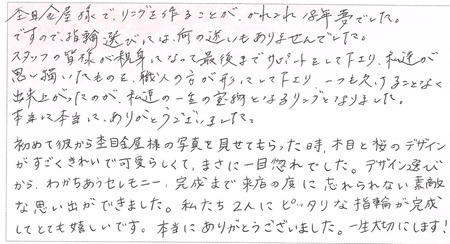 杢目金屋様で、リングを作ることが、かれこれ18年夢でした。
ですので、指輪選びには、何の迷いもありませんでした。
スタッフの皆様が親身になって最後までサポートをして下さり、私達が
思い描いたものを、職人の方が形にして下さり 一つも欠けることなく
出来上がったのが、私達の一生の宝物となるリングとなりました。
本当に本当に、ありがとうございました。
初めて彼から杢目金屋様の写真を見せてもらった時、木目と桜のデザイン
がすごくきれいで可愛らしくて、まさに一目惚れでした。デザイン選び
から、わかちあうセレモニー、完成まで来店の度に忘れられない素敵
な思い出ができました。私たち2人にピッタリな指輪が完成
してとても嬉しいです。本当にありがとうございました。一生大切にします!